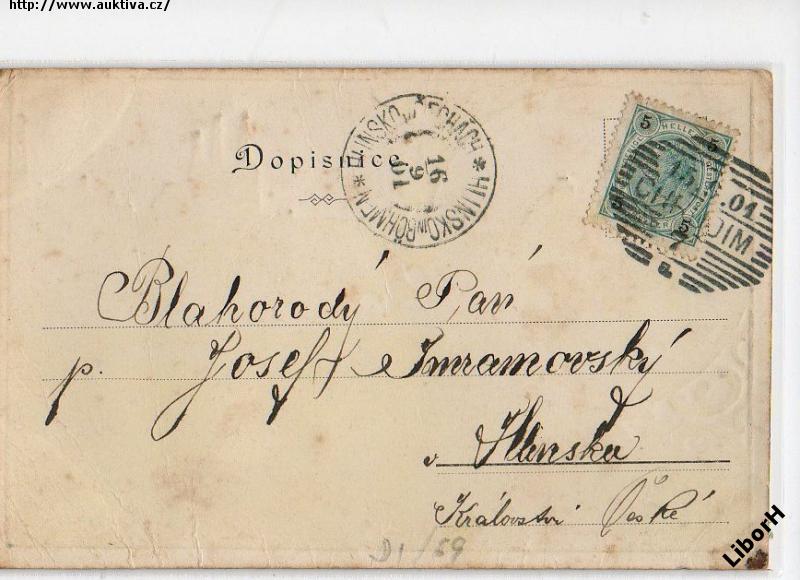 http://www.auktiva.cz/
Dopisnice
HLINSKO in BÖHMEN * HLINSKO v ČECHÁCH *
16
9
01
5 HELLER 5
5 5
CHRUDIM
01
Blahorodý Pán
p. Josef Imramovský
v Hlinsku
Království České
D1/59
LiborH